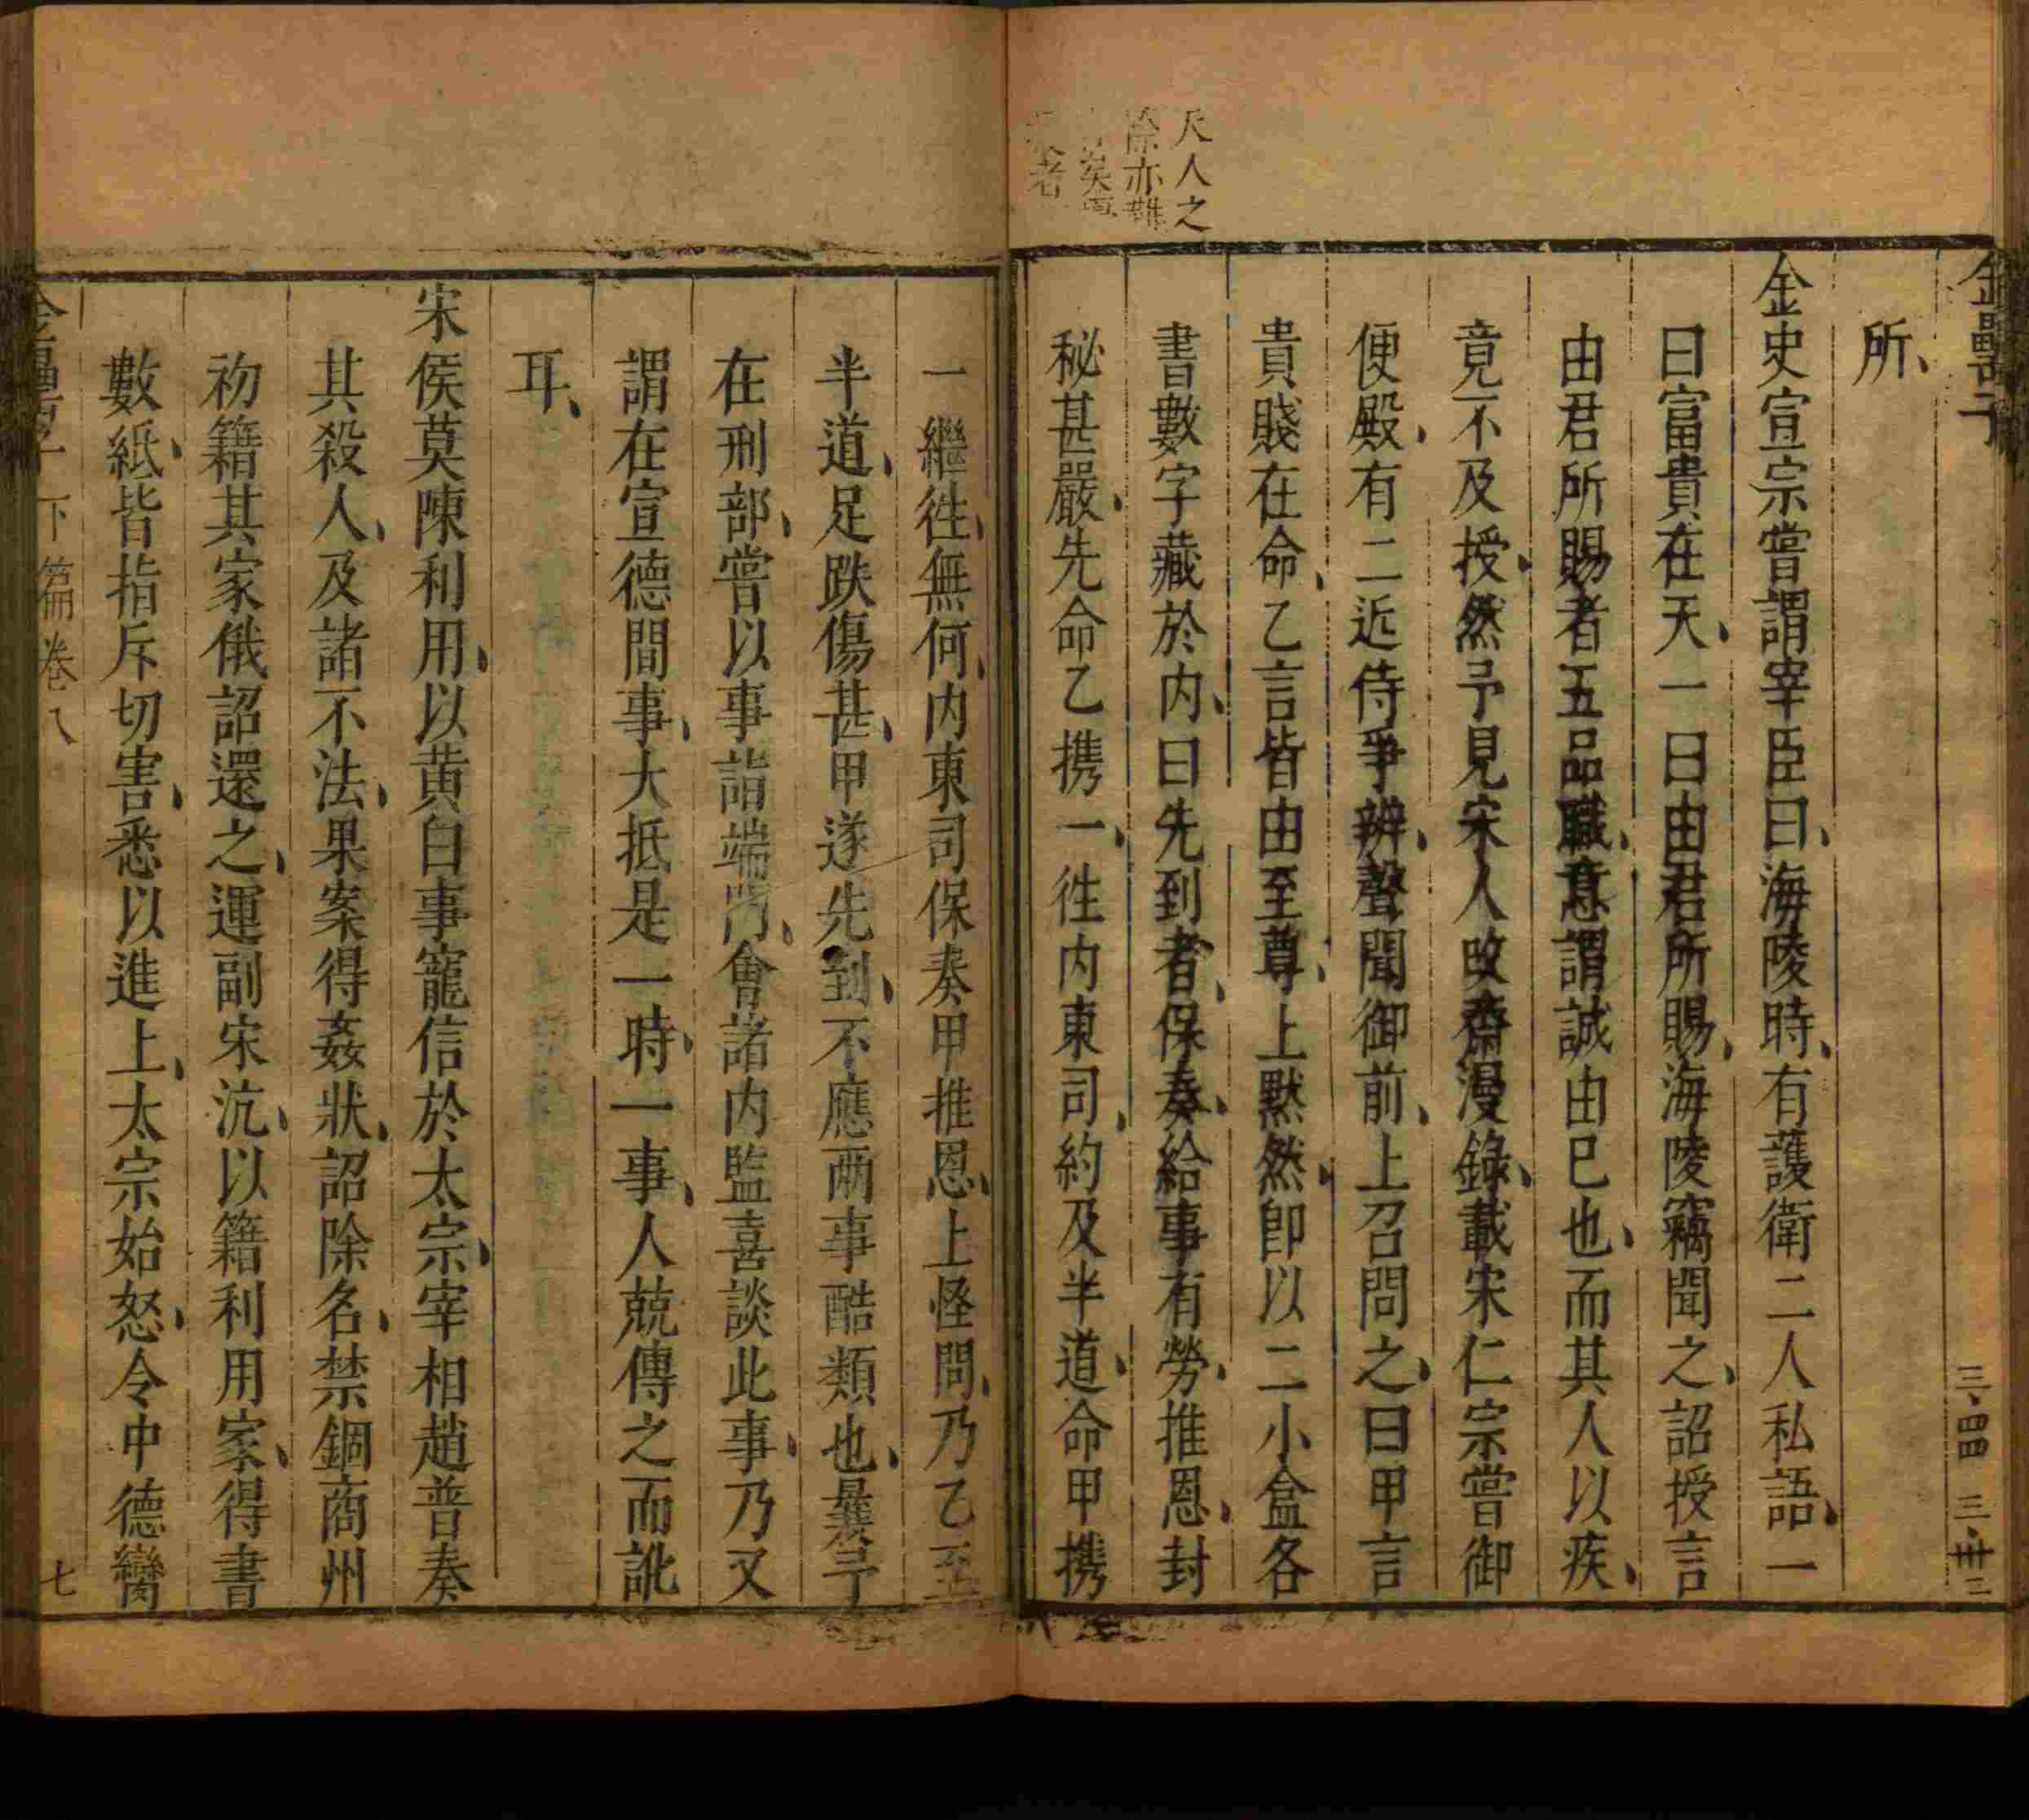 金罍子
三四四
三卅二
所、
金史宣宗嘗謂宰臣曰、海陵時、有護衛二人私語、一
曰富貴在天、一曰由君所賜、海陵竊聞之、詔授言
由君所賜者五品職、意謂誠由巳也、而其人以疾、
竟不及授、然予見宋人攺齋漫錄、載宋仁宗嘗御
便殿、有二近侍爭辨、聲聞御前、上召問之、曰甲言
貴賤在命、乙言皆由至尊、上默然、卽以二小盒各
書數字藏於内、曰先到者、保奏、給事有勞、推恩、封
秘甚嚴、先命乙携一、徃内東司、約及半道、命甲携
天人之
際亦難
矣
者
一繼徃、無何、内東司保奏甲推恩、上怪問、乃乙至
半道、足跌傷甚、甲遂先到、不應兩事酷類也、曩予
在刑部、嘗以事詣端門、會諸内監喜談此事、乃又
謂在宣德間事、大抵是一時、一事、人兢傳之而訛
耳、
宋侯莫陳利用、以黄白事寵信於太宗、宰相趙普奏
其殺人、及諸不法、果案得姦狀、詔除名、禁錮商州
初籍其家俄詔還之、運副宋沆、以籍利用家、得書
數紙、皆指斥切害、悉以進上、太宗始怒、令中德臠
金罍子 下篇卷八
七